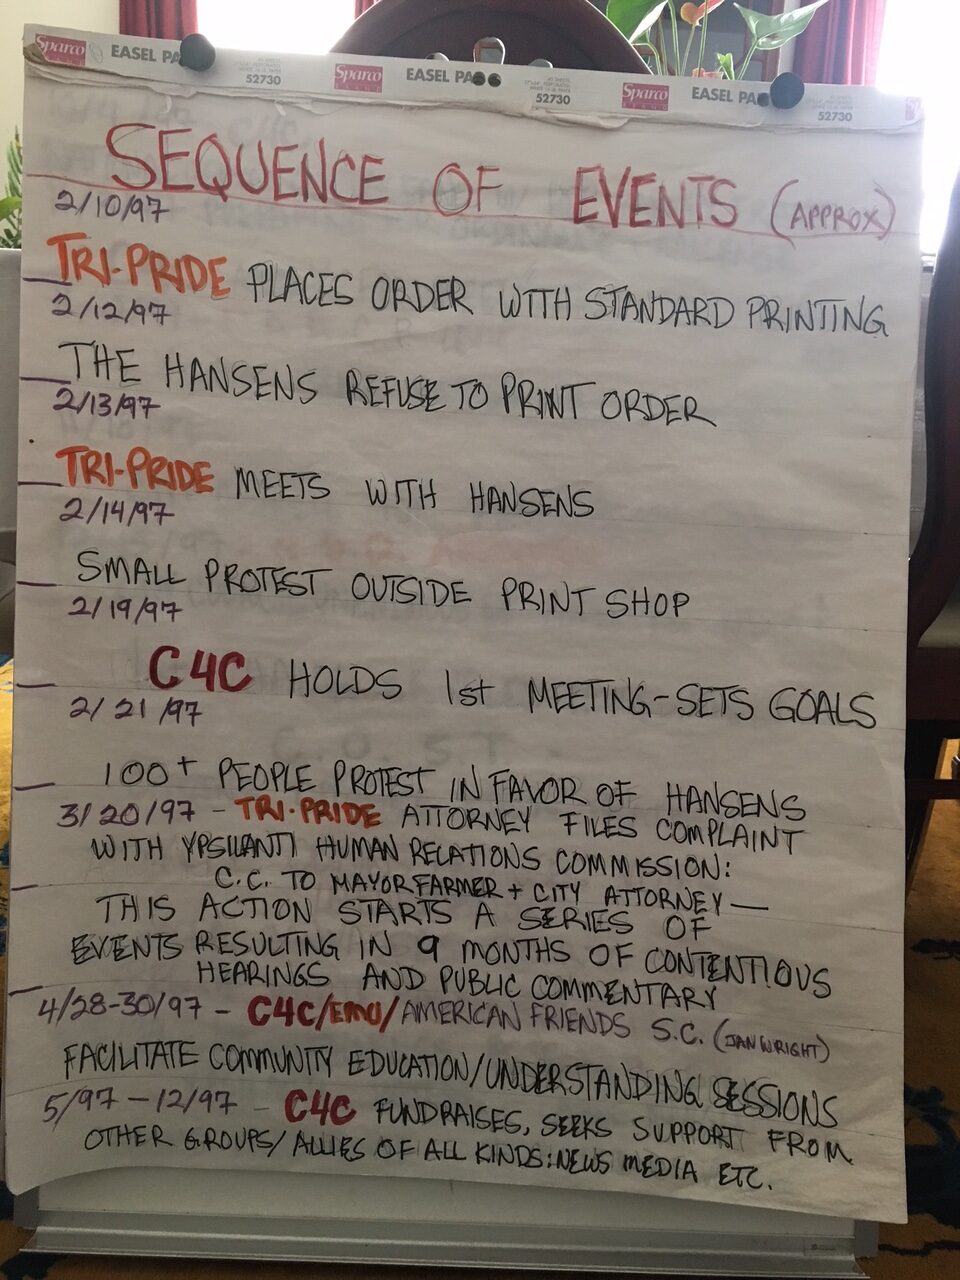 Sparco EASEL PA Sparco EASEL PA Sparco EASEL PA
52730 52730 52730
SEQUENCE OF EVENTS (APPROX)
2/10/97
TRI-PRIDE PLACES ORDER WITH STANDARD PRINTING
2/12/97
THE HANSENS REFUSE TO PRINT ORDER
2/13/97
TRI-PRIDE MEETS WITH HANSENS
2/14/97
SMALL PROTEST OUTSIDE PRINT SHOP
2/19/97
C4C HOLDS 1st MEETING-SETS GOALS
2/21/97
100+ PEOPLE PROTEST IN FAVOR OF HANSENS
3/20/97 - TRI-PRIDE ATTORNEY FILES COMPLAINT
WITH YPSILANTI HUMAN RELATIONS COMMISSION:
C.C. TO MAYOR FARMER + CITY ATTORNEY —
THIS ACTION STARTS A SERIES OF
EVENTS RESULTING IN 9 MONTHS OF CONTENTIOUS
HEARINGS AND PUBLIC COMMENTARY
4/28-30/97 - C4C/EMU/AMERICAN FRIENDS S.C. (JAN WRIGHT)
FACILITATE COMMUNITY EDUCATION/UNDERSTANDING SESSIONS
5/97 - 12/97 - C4C FUNDRAISES, SEEKS SUPPORT FROM
OTHER GROUPS/ALLIES OF ALL KINDS: NEWS MEDIA ETC.